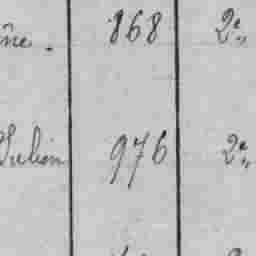 868 2e
Julien 976 2e